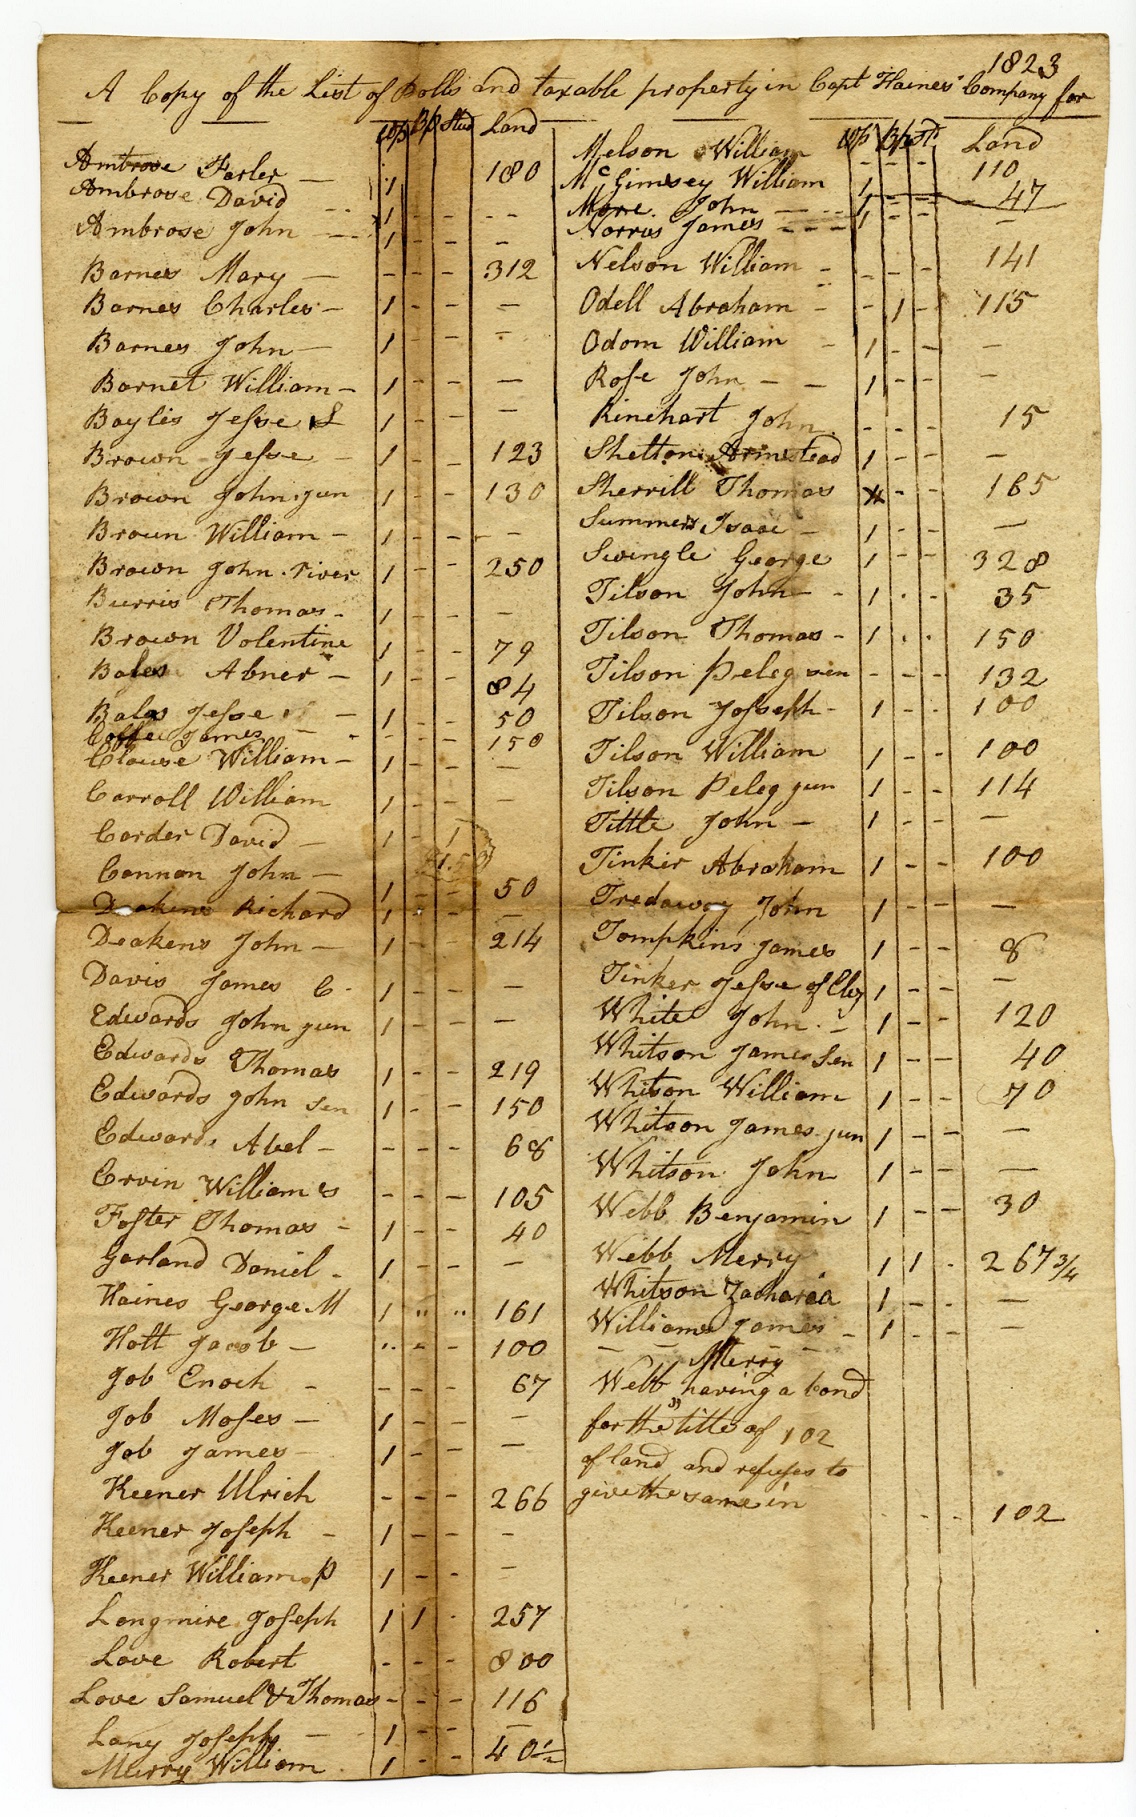 1823
A Copy of the List of Polls and taxable property in Capt Haines' Company for
w/p B/p Stud Land
Ambrose Farler — 1 180
Ambrose David - - 1 - - - -
Ambrose John — 1 - - -
Barnes Mary — - - - 312
Barnes Charles — 1 - - —
Barnes John — 1 - - -
Barnet William — 1 - - —
Baylis Jesse S 1 - - —
Brown Jesse — 1 - - 123
Brown John jun 1 - - 130
Broun William — 1 - - - -
Brown John river 1 - - 250
Burris Thomas - 1 - - —
Brown Volentine 1 - - 79
Bales Abner — 1 - - 84
Bales Jesse — 1 - - 50
Coffee James — - - - 150
Clouse William — 1 - - —
Carroll William 1 - - —
Carder David — 1 - 1
Cannon John — 1 - - 50
Deakens Richard 1 - - —
Deakens John — 1 - - 214
Davis James C - 1 - - —
Edwards John jun 1 - - —
Edwards Thomas 1 - - 219
Edwards John Sen 1 - - 150
Edwards Abel — - - - 68
Ervin Williams - - - 105
Foster Thomas - 1 - - 40
Garland Daniel - 1 - - —
Haines George M 1 " " 161
Hott Jacob — " - - 100
Job Enoch - - - - 67
Job Moses — 1 - - —
Job James — 1 - - —
Keener Ulrich - - - 266
Keener Joseph - 1 - - -
Keener William P 1 - - -
Longmire Joseph 1 1 - 257
Love Robert - - - 800
Love Samuel & Thomas - - - 116
Lany Joseph — 1 - - —
Murry William - 1 - - 40½
w/p B/p St. Land
Melson William - - - 110
McGimsey William 1 - - 47
More John — 1
Norris James - - - 1 - - —
Nelson William - - - - 141
Odell Abraham - - 1 - 115
Odom William - 1 - - —
Rose John - - 1 - - —
Rinehart John - - - 15
Shelton Armstead 1 - - —
Sherrill Thomas - - 165
Summers Isaac - 1 - - —
Swingle George 1 - - 328
Tilson John - - 1 - - 35
Tilson Thomas - 1 . . 150
Tilson Peleg sen - - - 132
Tilson Josseph - 1 - - 100
Tilson William 1 - - 100
Tilson Peleg jun 1 - - 114
Tittle John — 1 - - —
Tinker Abraham 1 - - 100
Tredaway John 1 - - —
Tompkins James 1 - - 8
Tinker Jesse of 1 - - —
White John - 1 - - 120
Whitson James Sen 1 - — 40
Whitson William 1 - - 70
Whitson James jun 1 - — —
Whitson John 1 - - —
Webb Benjamin 1 - — 30
Webb Merry 1 1 - 267¾
Whitson Zacharia 1 - - —
Williams James - 1 - - —
Merry
Webb " having a bond
for the title of 102
of land and refuses to
give the same in - - - 102